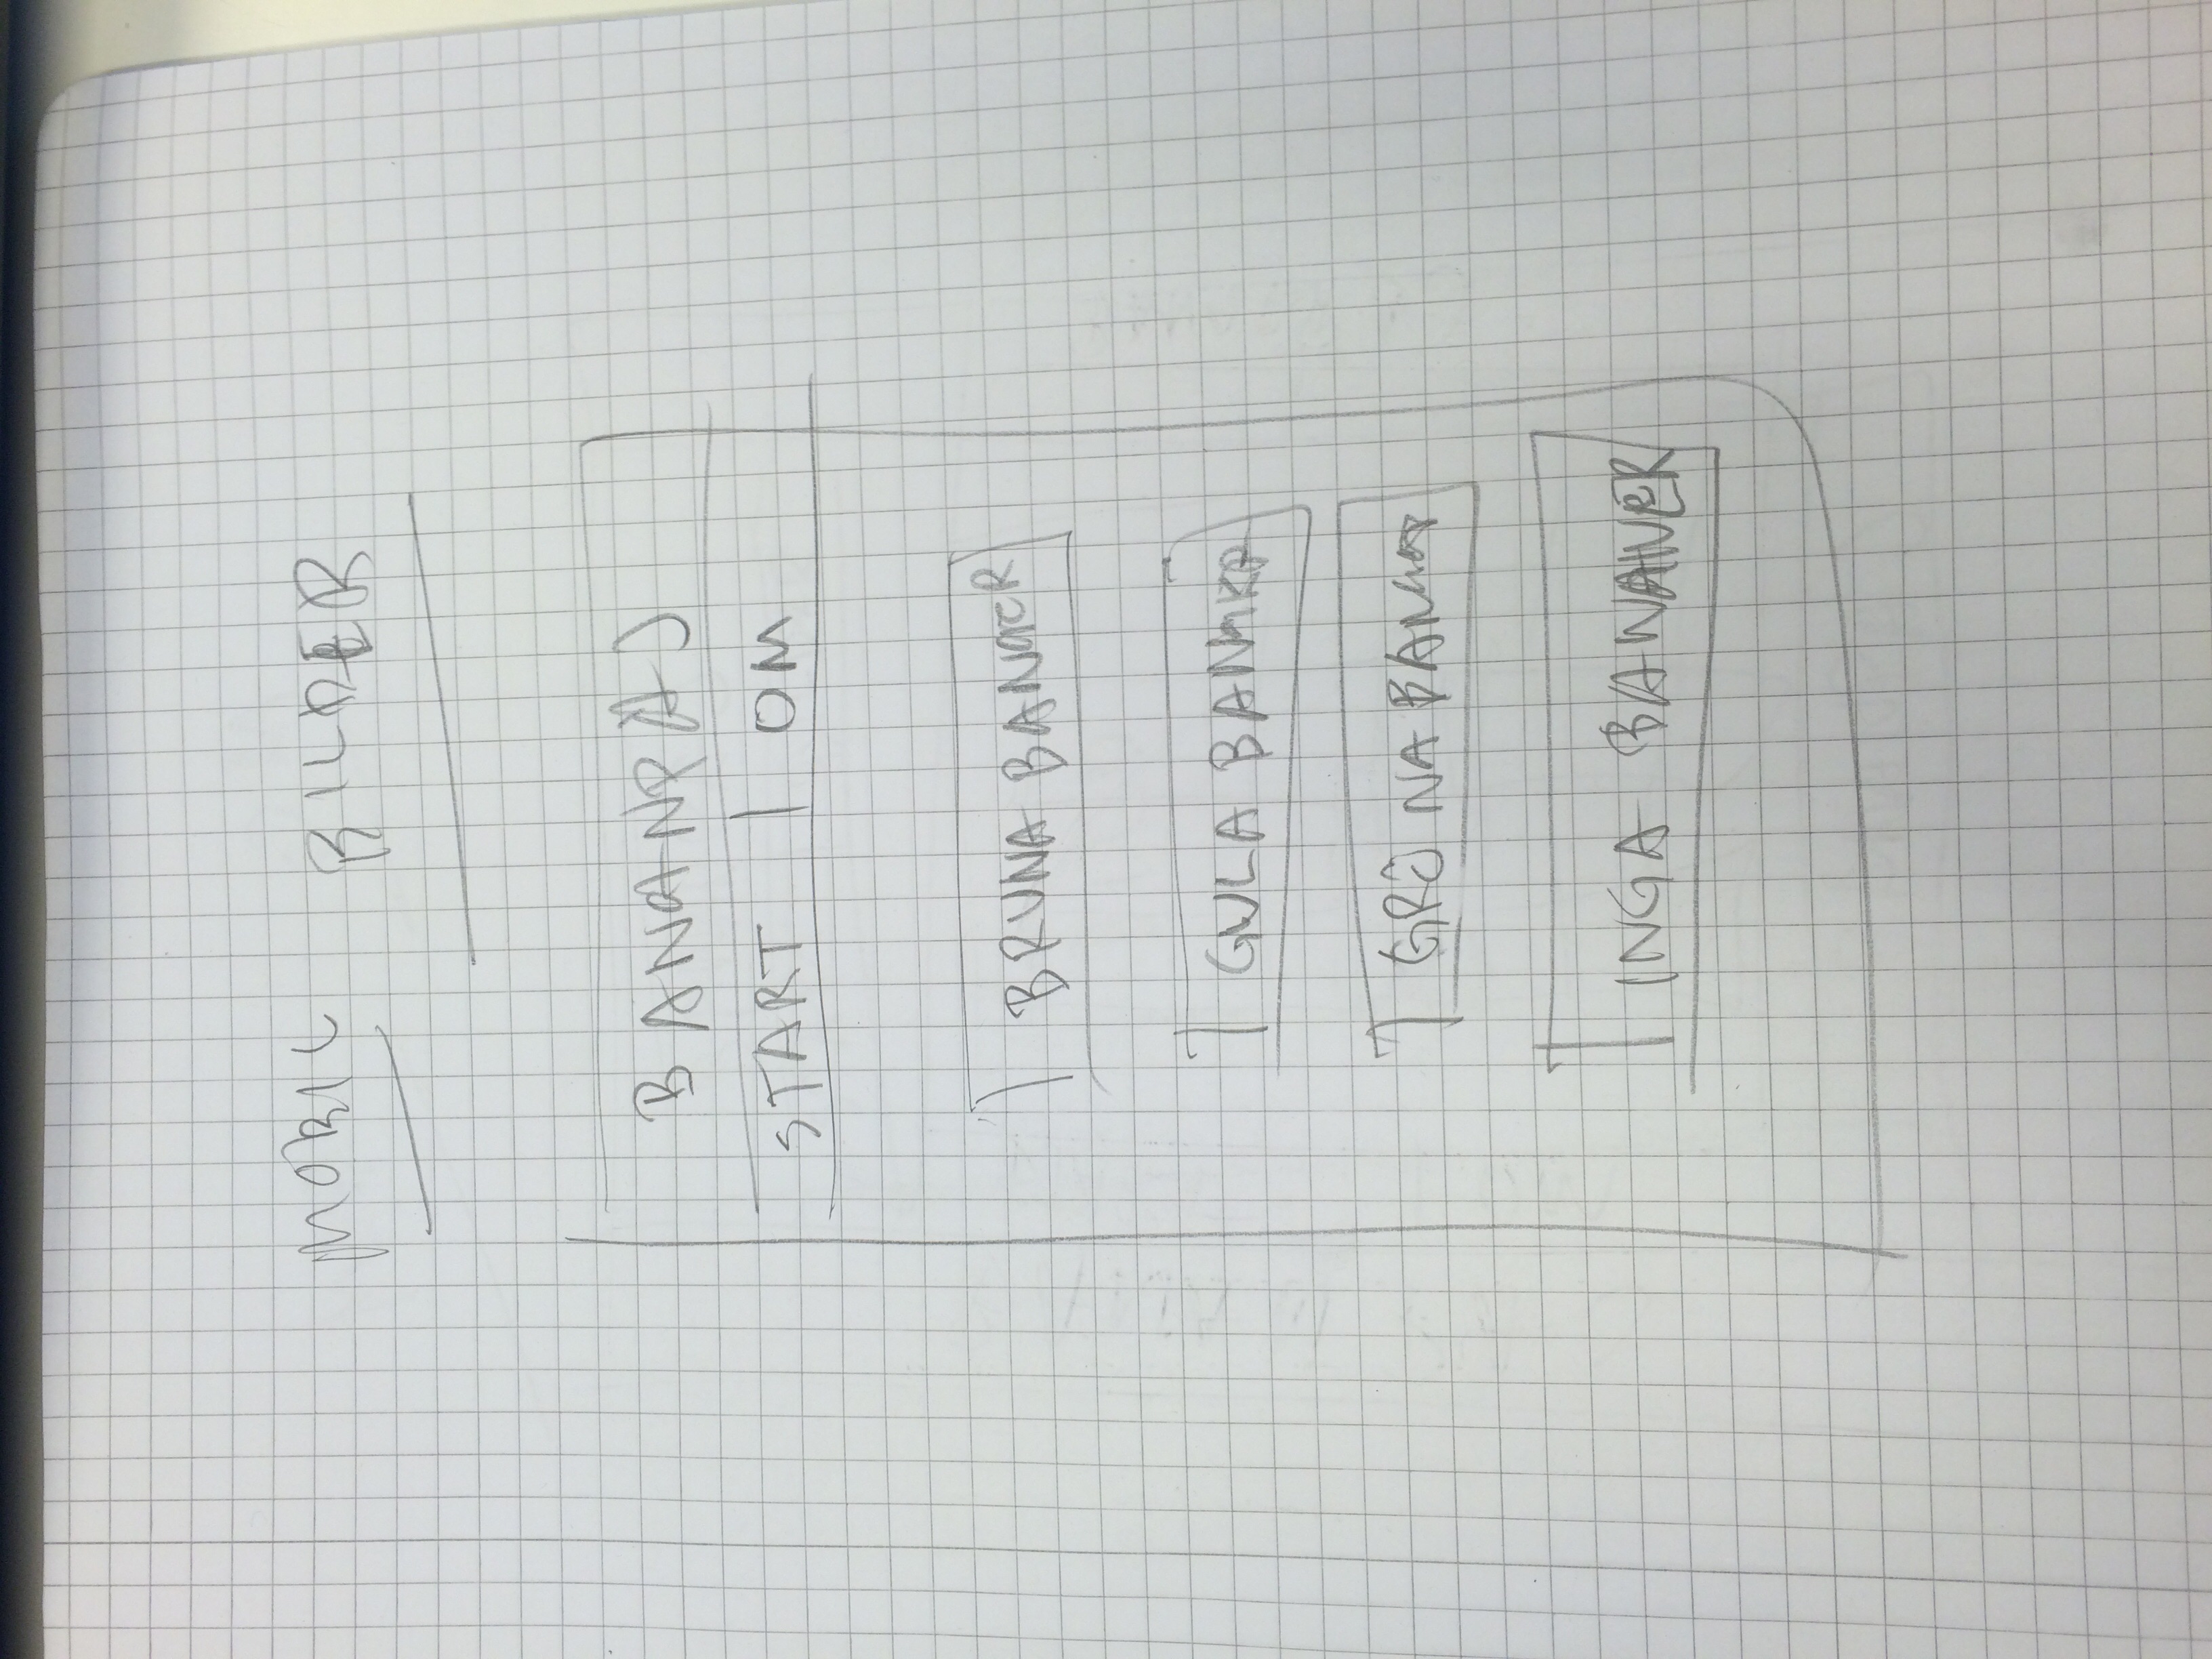 MOBIL BILDER
BANANPAJ
START | OM
BRUNA BANANER
GULA BANANER
GRÖNA BANANER
INGA BANANER